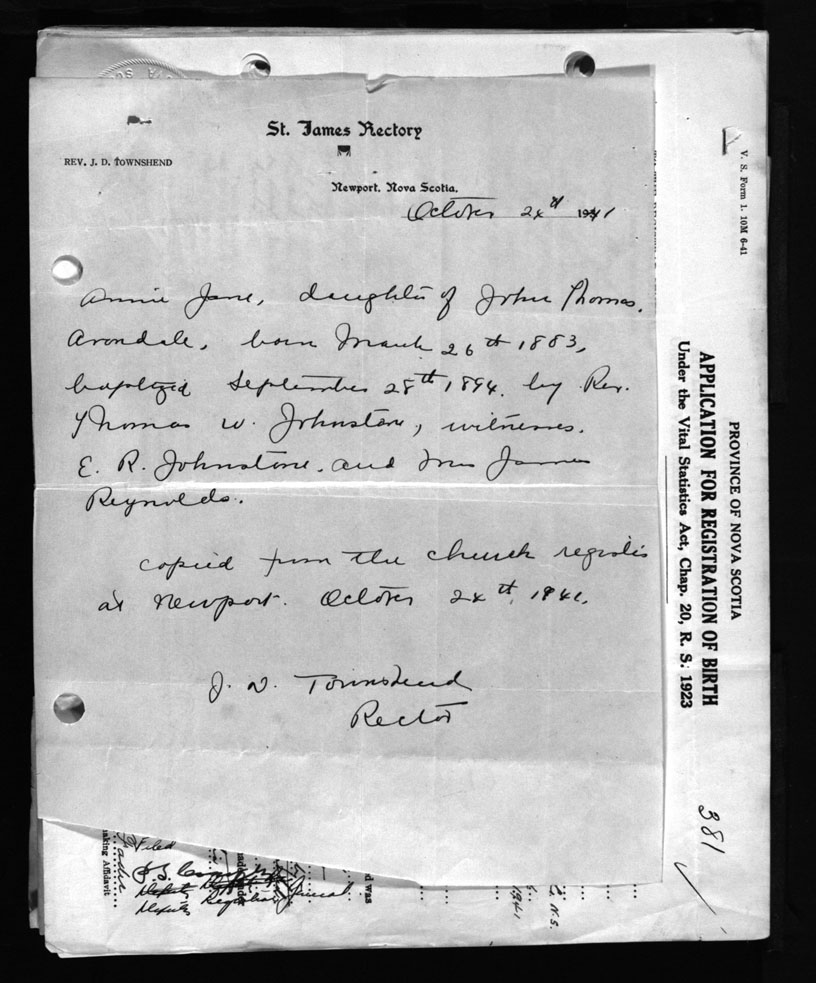 St. James Rectory
REV. J. D. TOWNSHEND
Newport, Nova Scotia,
October 24th 1941
Annie Jane, daughter of John Thomas,
Avondale, born March 26th 1883,
baptized September 28th 1894. by Rev.
Thomas W. Johnstone, witnesses.
E. R. Johnstone. and Mrs James
Reynolds.
copied from the church register
at Newport. October 24th, 1941.
J. D. Townshend
Rector
V. S. Form 1. 10M 6-41
PROVINCE OF NOVA SCOTIA
APPLICATION FOR REGISTRATION OF BIRTH
Under the Vital Statistics Act, Chap. 20, R. S. 1923
381
Filed
Registrar General
aking Affidavit
d was
1941
N.S.